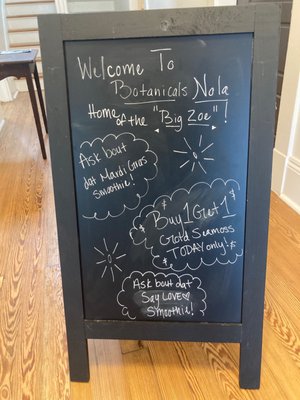 Welcome To
Botanicals Nola
Home of the "Big Zoe"!
Ask bout
dat Mardi Gras
Smoothie!
Buy 1 Get 1
Gold Seamoss
TODAY only!
Ask bout dat
Say LOVE
Smoothie!